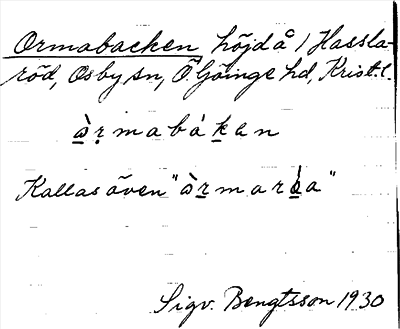 Ormabacken höjd å 1 Hassla-
röd, Osby sn, Ö. Göinge hd, Krist. l.
àr̲mabák̲an
Kallas även "àr̲mar
Sigv. Bengtsson 1930